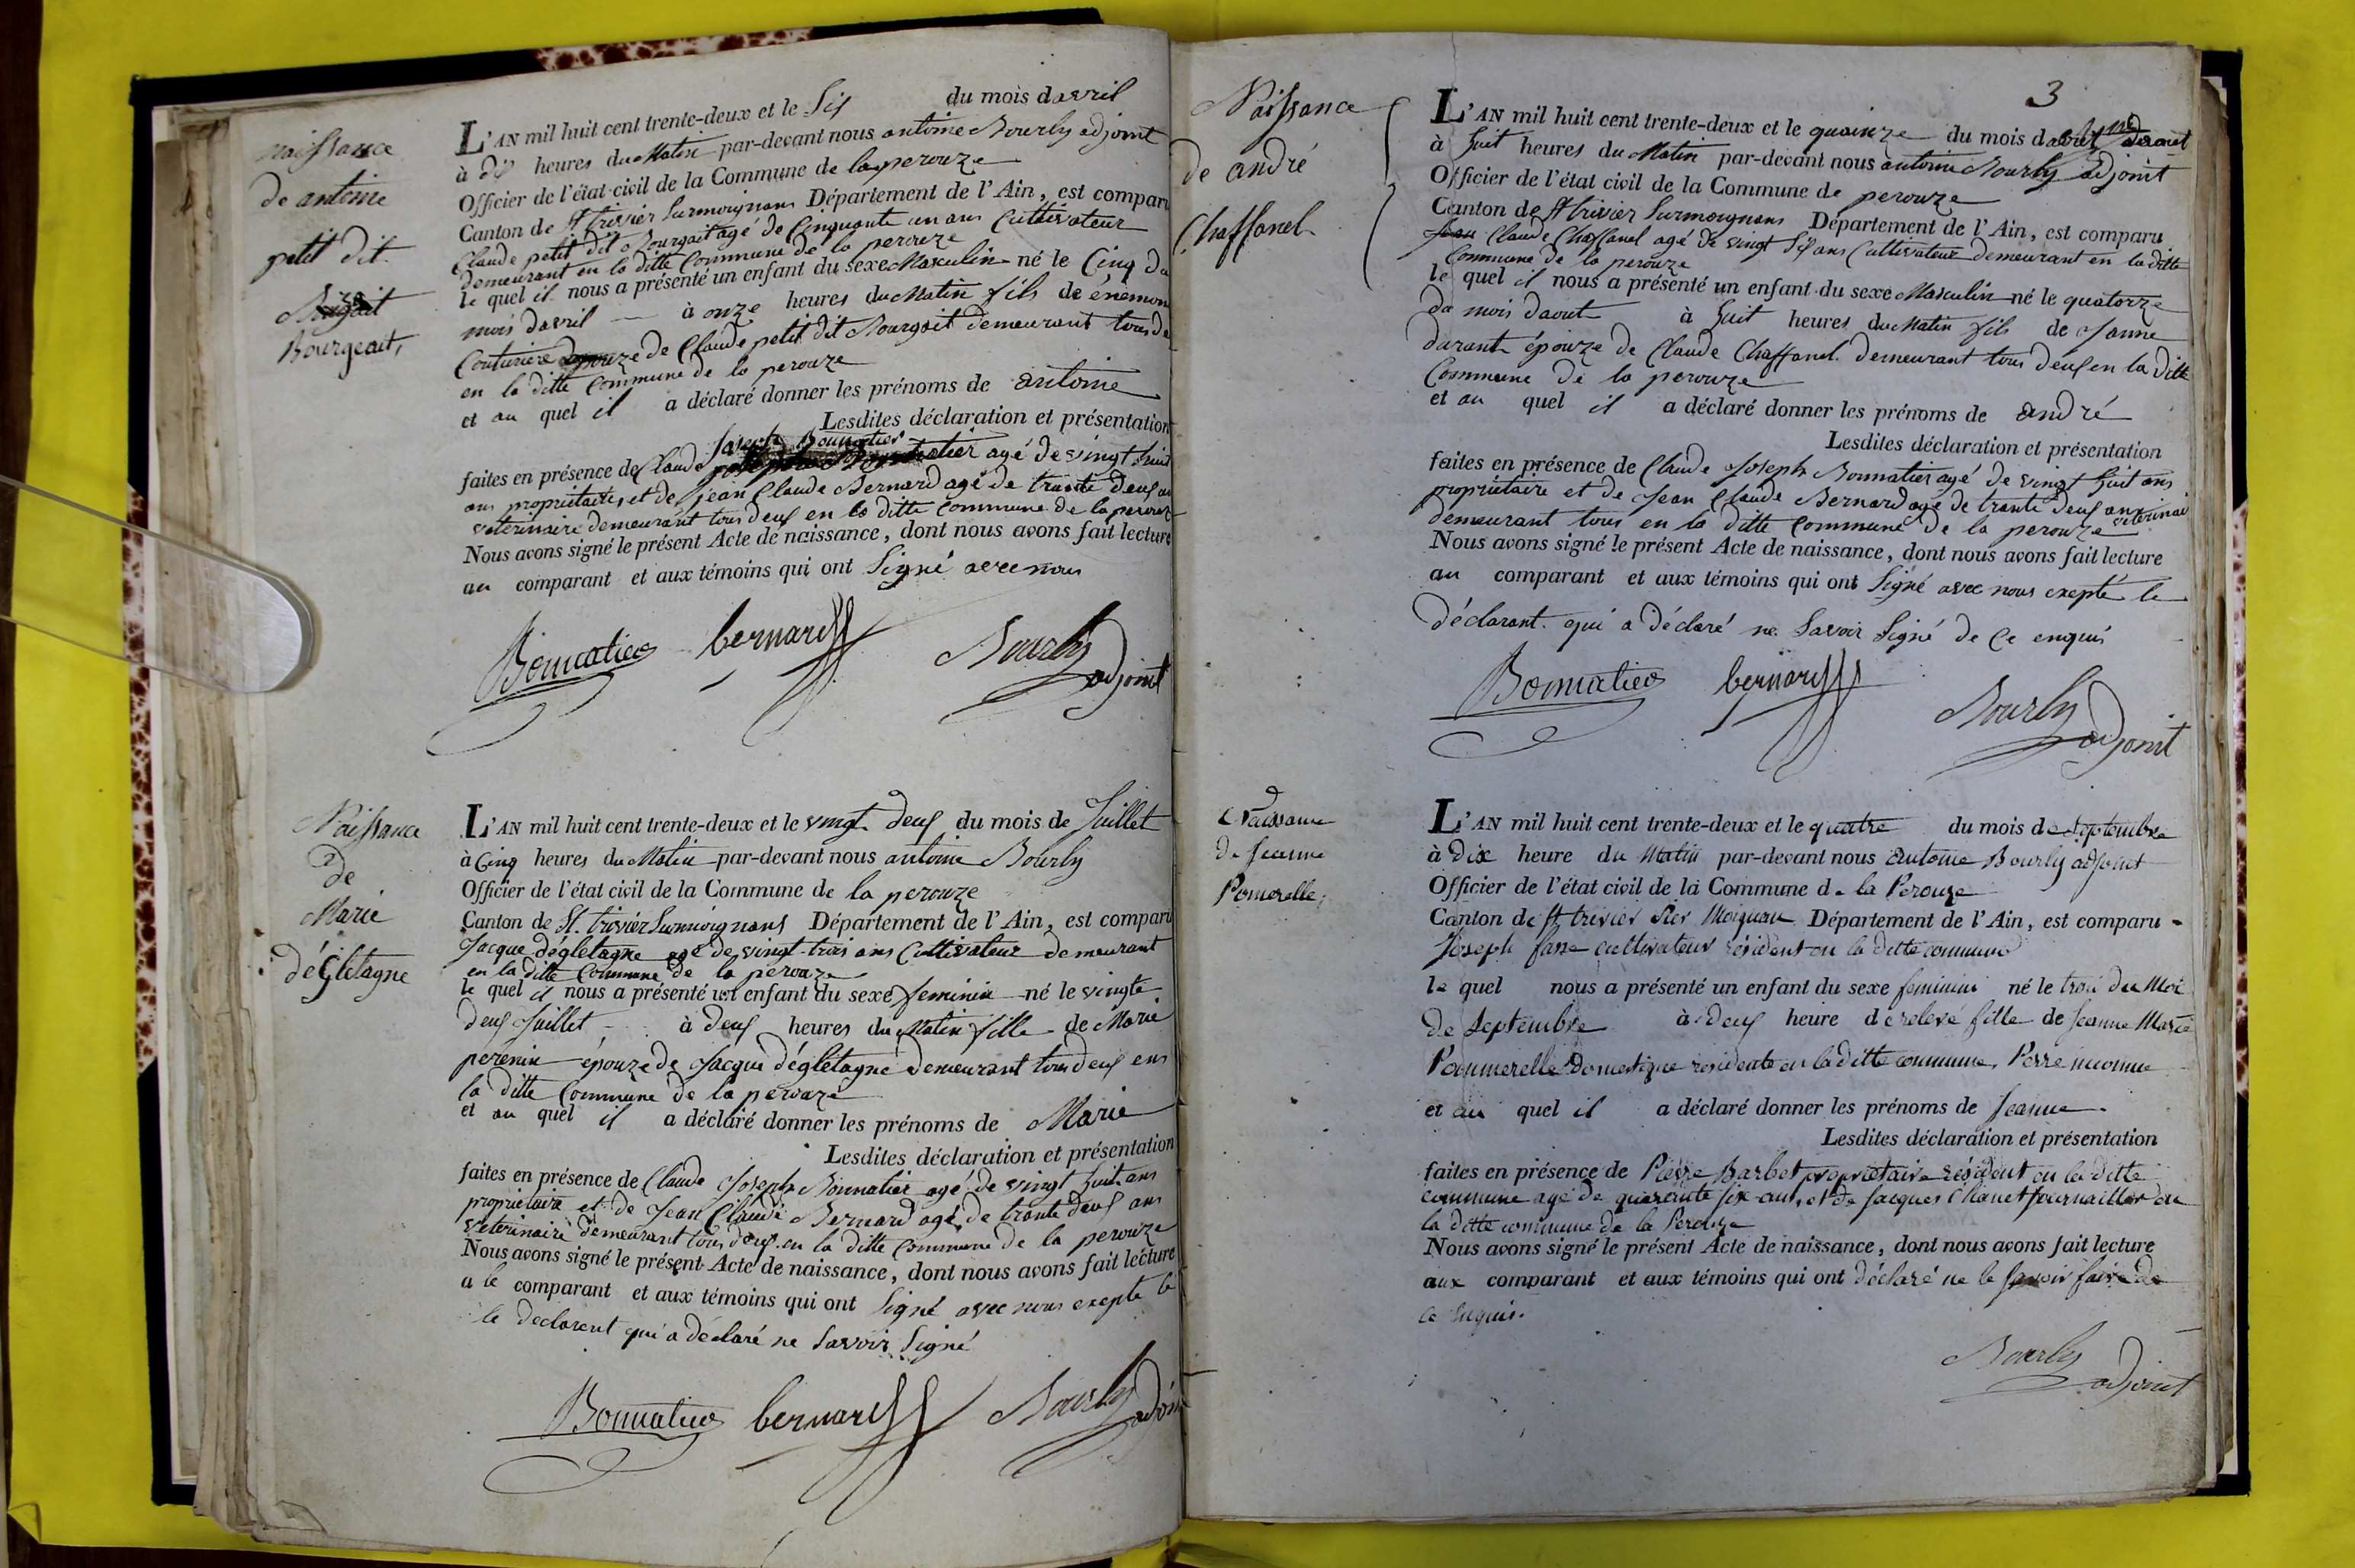 naissance
de antoine
petit dit
Bourgeait,
L'AN mil huit cent trente-deux et le Six du mois davril
à dix heures du Matin par-devant nous antoine Bourly adjoint
Officier de l'état civil de la Commune de la perouze
Canton de St. trivier Surmoignans Département de l'Ain, est comparu
Claude petit dit Bourgait agé de Cinquante un ans Cultivateur
demeurant en la ditte Commune de la perouze
le quel il nous a présenté un enfant du sexe Masculin né le Cinq du
mois davril à onze heures du Matin fils de énemon
Couturière épouze de Claude petit dit Bourgait demeurant tous de
en la ditte Commune de la perouze
et au quel il a déclaré donner les prénoms de antoine
Lesdites déclaration et présentation
Joseph Bonnatier
faites en présence de Claude agé de vingt huit
ans propriétaire, et de jean Claude Bernard agé de trante deux an
veterinaire demeurant tous deux en la ditte Commune de la perouze
Nous avons signé le présent Acte de naissance, dont nous avons fait lecture
au comparant et aux témoins qui ont Signé avec nous
Bonnatier bernard Bourly
adjoint
Naissance
de
Marie
déGletagne
L'AN mil huit cent trente-deux et le vingt deux du mois de Juillet
à Cinq heures du Matin par-devant nous antoine Bourly
Officier de l'état civil de la Commune de la perouze
Canton de St. trivier Surmoignans Département de l'Ain, est comparu
Jacque dégletagne agé de vingt trois ans Cultivateur demeurant
en la ditte Commune de la perouze
le quel il nous a présenté un enfant du sexe feminin né le vingte
deux Juillet à deux heures du Matin fille de Marie
perenin épouze de Jacque déglétagne demeurant tous deux ens
la ditte Commune de la perouze
et au quel il a déclaré donner les prénoms de Marie
Lesdites déclaration et présentation
faites en présence de Claude Joseph Bonnatier agé de vingt huit ans
propriétaire et de Jean Claude Bernard agé de trante deux ans
veterinaire demeurant tous deux en la ditte Commune de la perouze
Nous avons signé le présent Acte de naissance, dont nous avons fait lecture
a le comparant et aux témoins qui ont Signé avec nous exepte le
le declarent qui a déclaré ne Savoir Signé
Bonnatier bernard Bourly
adjoint
3
Naissance
de andré
Chaffanel
L'AN mil huit cent trente-deux et le quainze du mois
à huit heures du Matin par-devant nous antoine Bourly adjoint
Officier de l'état civil de la Commune de perouze
Canton de St trivier Surmoignans Département de l'Ain, est comparu
Claude Chaffanel agé de vingt Six ans Cultivateur demeurant en la ditte
Commune de la perouze
le quel il nous a présenté un enfant du sexe Masculin né le quatorze
du mois daout à huit heures du Matin fils de Janne
durant épouze de Claude Chaffanel demeurant tous deux en la ditte
Commune de la perouze
et au quel il a déclaré donner les prénoms de andré
Lesdites déclaration et présentation
faites en présence de Claude Joseph Bonnatier agé de vingt huit ans
propriétaire et de Jean Claude Bernard agé de trante deux ans veterinai
demeurant tous en la ditte Commune de la perouze
Nous avons signé le présent Acte de naissance, dont nous avons fait lecture
au comparant et aux témoins qui ont Signé avec nous exepté le
déclarant qui a déclaré ne Savoir Signé de Ce enquis
Bonnatier bernard Bourly
adjoint
Naissance
de Jeanne
Pomerelle,
L'AN mil huit cent trente-deux et le quatre du mois de Septembre
à Dix heure du Matin par-devant nous Antoine Bourly adjoint
Officier de l'état civil de la Commune de la Perouze
Canton de St trivier Sier Moignan Département de l'Ain, est comparu
Joseph fasse cultivateur résident en la ditte commune
le quel nous a présenté un enfant du sexe feminini né le troi du Moi
de Septembre à deux heure de relevé fille de Jeanne Marie
Pommerelle Domestique residente en la ditte commune, Perre inconnue
et au quel il a déclaré donner les prénoms de Jeanne
Lesdites déclaration et présentation
faites en présence de Pierre Barbet propriétaire résident en la ditte
commune agé de quarente six ans, et de Jacques Chanet Journaillier en
la ditte commune de la Perouze
Nous avons signé le présent Acte de naissance, dont nous avons fait lecture
aux comparant et aux témoins qui ont déclaré ne le savoir faire de
ce enquis.
Bourly
adjoint